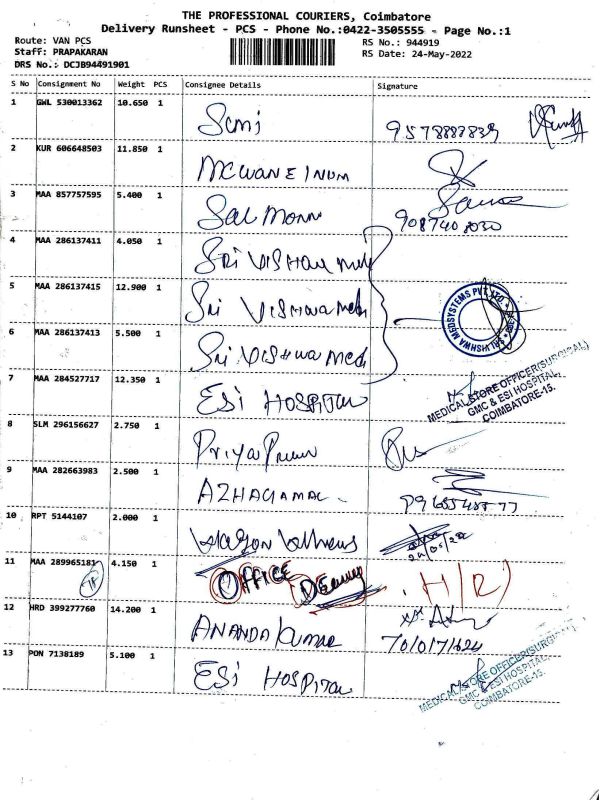 THE PROFESSIONAL COURIERS, Coimbatore
Delivery Runsheet - PCS - Phone No.:0422-3505555 - Page No.:1
Route: VAN PCS RS No.: 944919
Staff: PRAPAKARAN RS Date: 24-May-2022
DRS No.: DCJB94491901
S No Consignment No Weight PCS Consignee Details Signature
1 GWL 530013362 10.650 1
2 KUR 606648503 11.850 1
MCWANE INDM
3 MAA 857757595 5.400 1
Sal Monn
9087408030
4 MAA 286137411 4.050 1
SRi VISHWA Medi
5 MAA 286137415 12.900 1
SRi VISHWA Medi
SRI VISHWA MEDSYSTEMS PVT. LTD.
6 MAA 286137413 5.500 1
SRi VISHWA Medi
7 MAA 284527717 12.350 1
ESi HOSPITAL
MEDICAL STORE OFFICER(SURGICAL)
GMC & ESI HOSPITAL,
COIMBATORE-15.
8 SLM 296156627 2.750 1
9 MAA 282663983 2.500 1
10 RPT 5144107 2.000 1
24/05/22
11 MAA 289965181 4.150 1
OFFICE
H/R)
12 HRD 399277760 14.200 1
ANANDA KUMAR
13 PON 7138189 5.100 1
ESi HOSPITAL
MEDICAL STORE OFFICER(SURGICAL)
GMC & ESI HOSPITAL,
COIMBATORE-15.